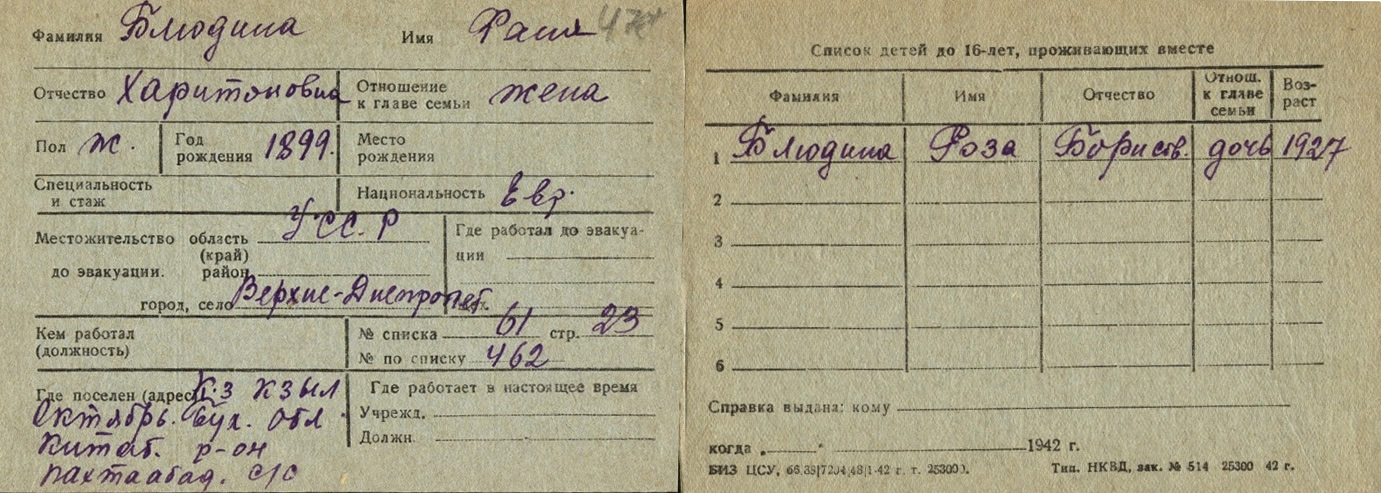 Фамилия Блюдина Имя Фаня
Отчество Харитоновна Отношение к главе семьи жена
Пол Ж. Год рождения 1899. Место рождения
Специальность и стаж Национальность Евр.
Местожительство до эвакуации. область (край) У.С.С.Р Где работал до эвакуации
район
город, село Верхне-Днепропет.
Кем работал (должность) № списка 61 стр. 23
№ по списку 462
Где поселен (адрес) К-з Кзыл Где работает в настоящее время
Октябрь. Бух. обл. Учрежд.
Китаб. р-он Должн.
Пахтаабад. с/с
Список детей до 16-лет, проживающих вместе
Фамилия Имя Отчество Отнош. к главе семьи Возраст
1 Блюдина Роза Борисв. дочь 1927
2
3
4
5
6
Справка выдана: кому
когда „ “ 1942 г.
БИЗ ЦСУ, Тип. НКВД, зак. № 514 25300 42 г.